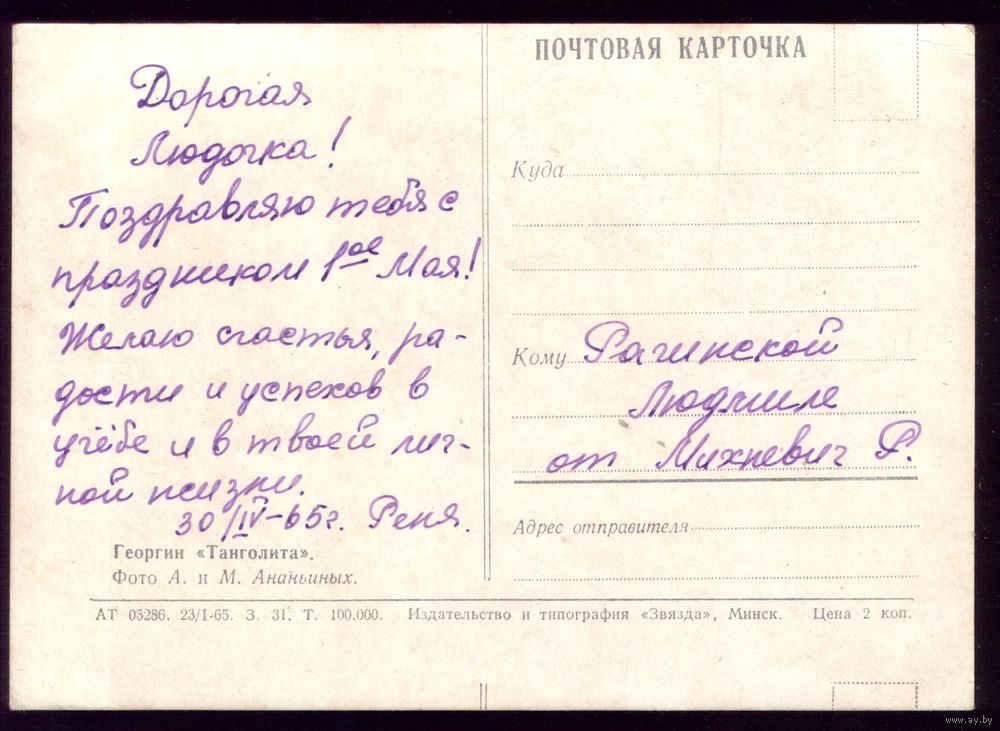 Дорогая
Людочка!
Поздравляю тебя с
праздником 1ое Мая!
Желаю счастья, ра-
дости и успехов в
учёбе и в твоей лич-
ной жизни.
30/IV-65г. Реня.
Георгин «Танголита».
Фото А. и М. Ананьиных.
ПОЧТОВАЯ КАРТОЧКА
Куда
Кому Рагинской
Людмиле
от Михневич Р.
Адрес отправителя
АТ 05286. 23/I-65. З. 31. Т. 100.000. Издательство и типография «Звязда», Минск. Цена 2 коп.
www.ay.by